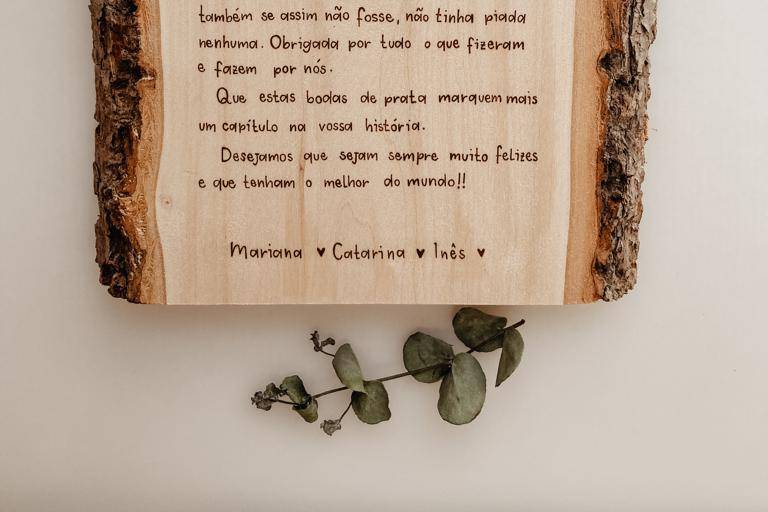 também se assim não fosse, não tinha piada
nenhuma. Obrigada por tudo o que fizeram
e fazem por nós.
Que estas bodas de prata marquem mais
um capítulo na vossa história.
Desejamos que sejam sempre muito felizes
e que tenham o melhor do mundo!!
Mariana ♥ Catarina ♥ Inês ♥